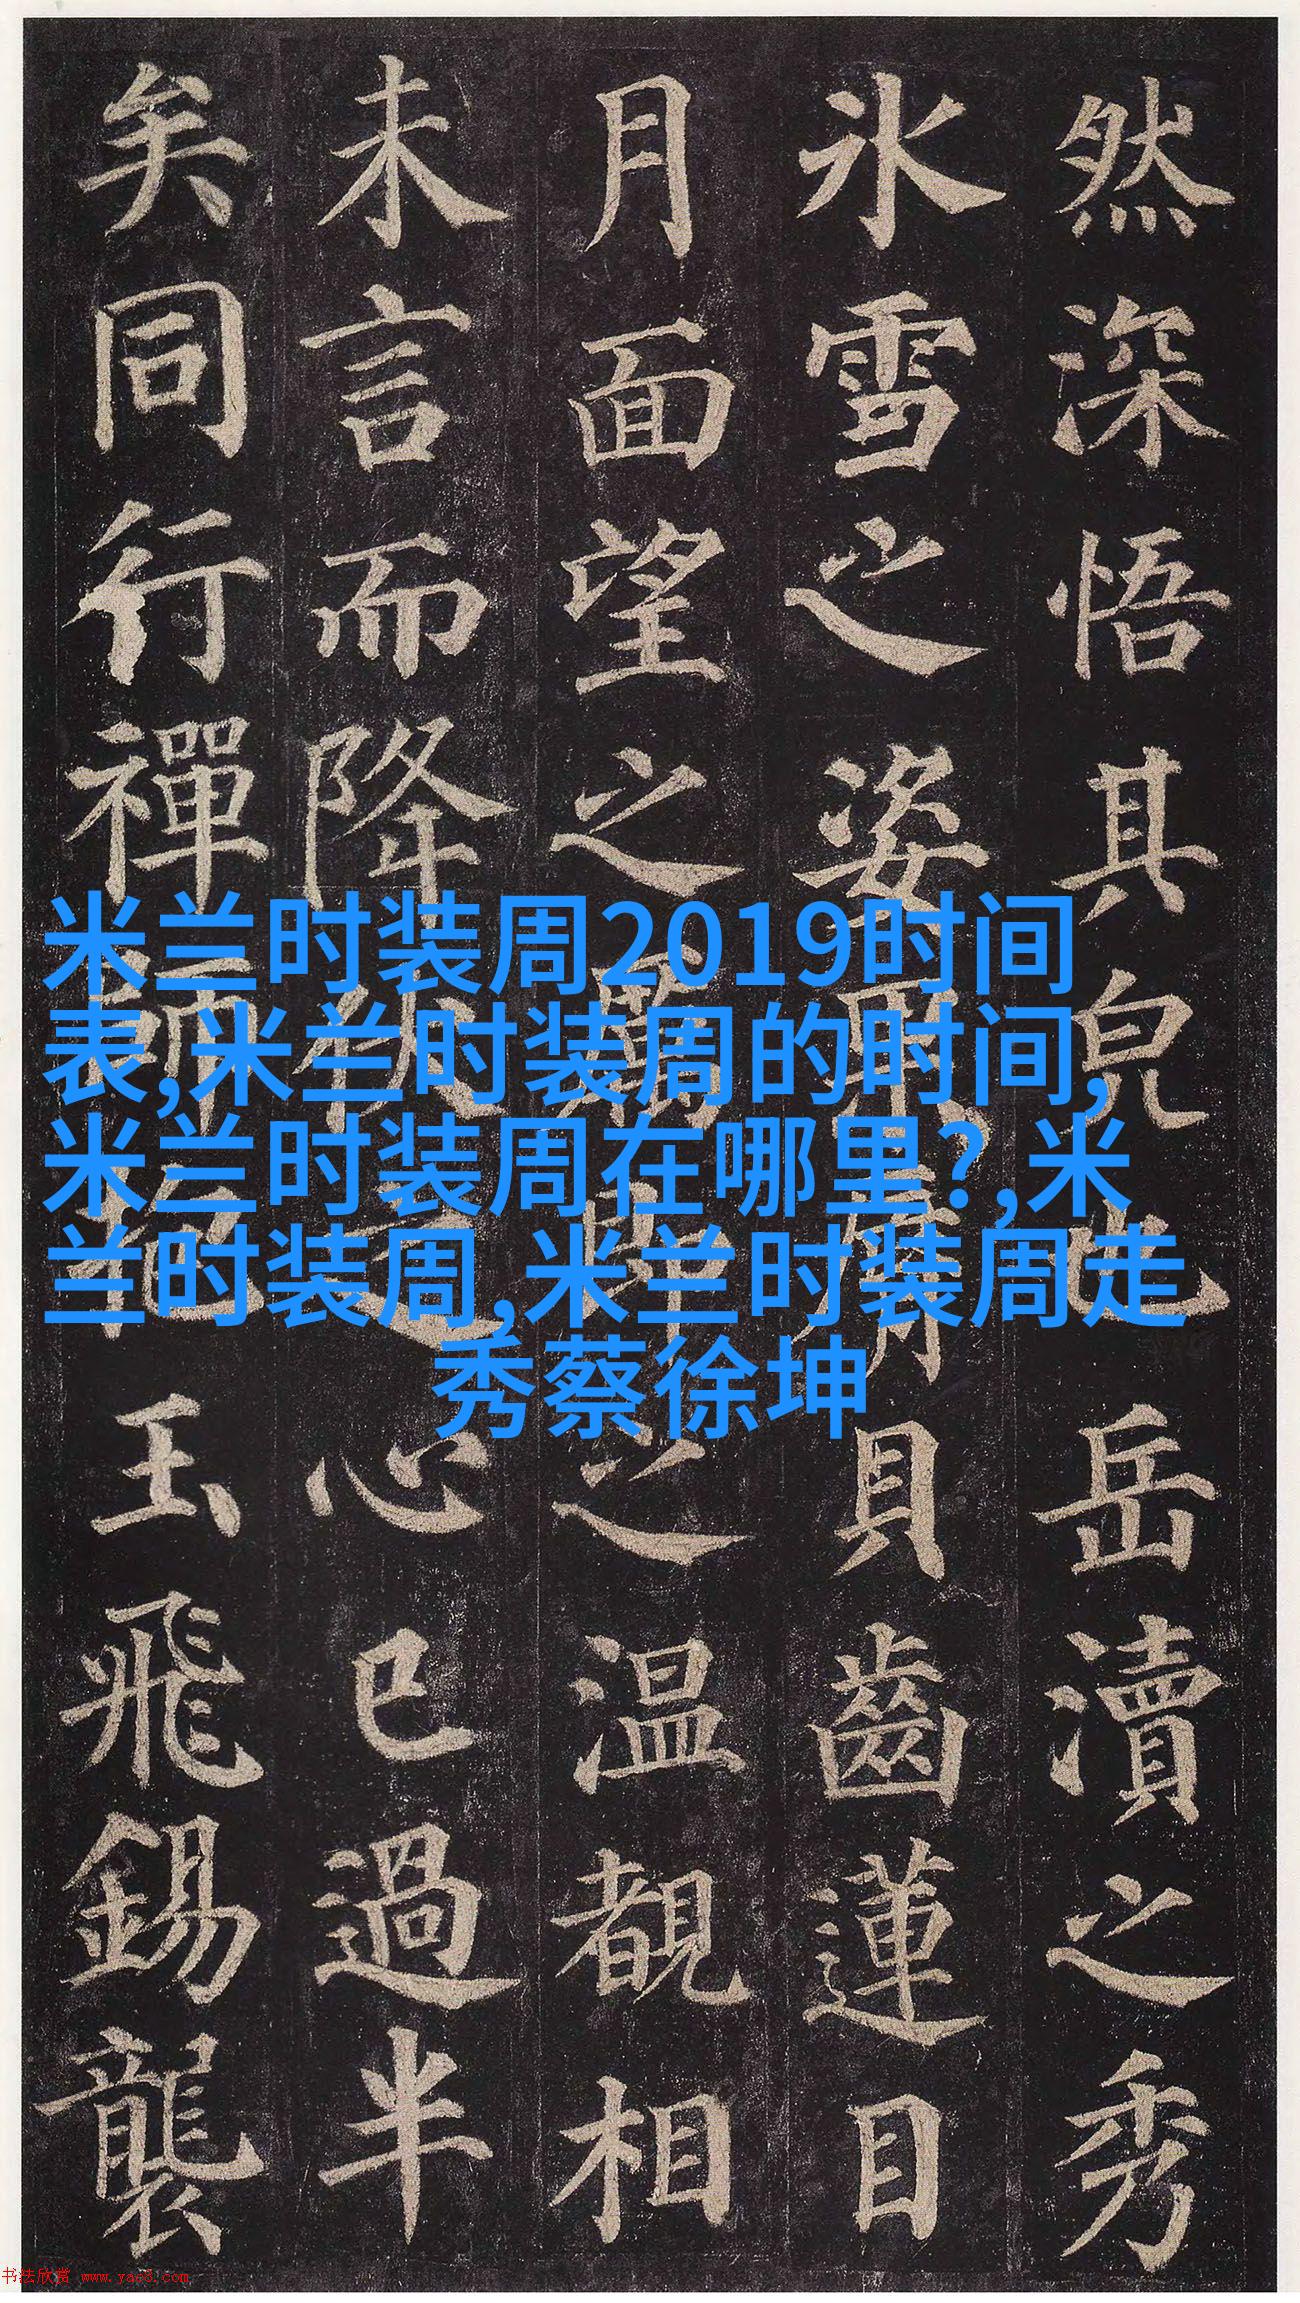 然深悟其皃也岳瀆之秀
氷雪之姿果脣貝齒蓮目
月面望之厲即之温覩相
未言而降伏之心已過半
矣同行禪師抱玉飛錫襲
米兰时装周2019时间
表,米兰时装周的时间,
米兰时装周在哪里?,米
兰时装周,米兰时装周走
秀蔡徐坤
书法欣赏 www.yac8.com